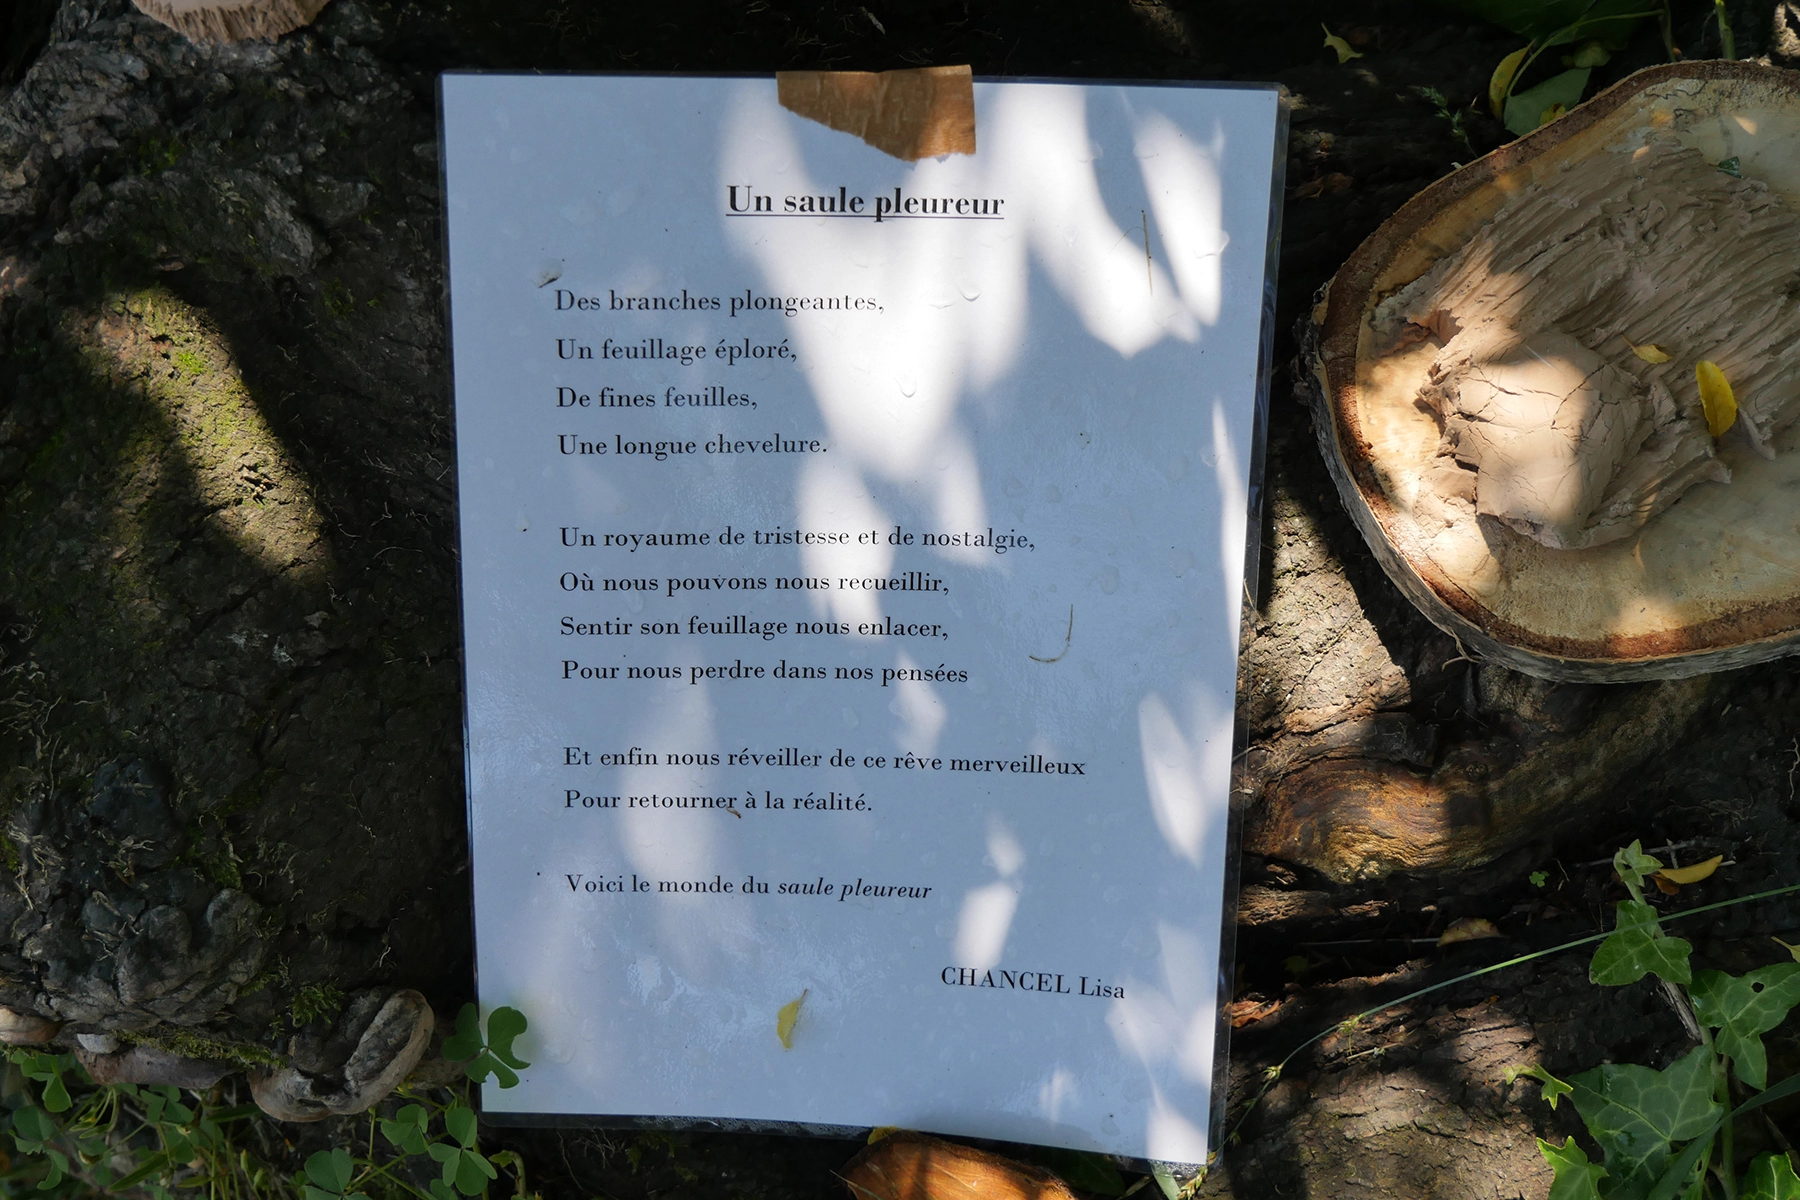 Un saule pleureur
Des branches plongeantes,
Un feuillage éploré,
De fines feuilles,
Une longue chevelure.
Un royaume de tristesse et de nostalgie,
Où nous pouvons nous recueillir,
Sentir son feuillage nous enlacer,
Pour nous perdre dans nos pensées
Et enfin nous réveiller de ce rêve merveilleux
Pour retourner à la réalité.
Voici le monde du saule pleureur
CHANCEL Lisa